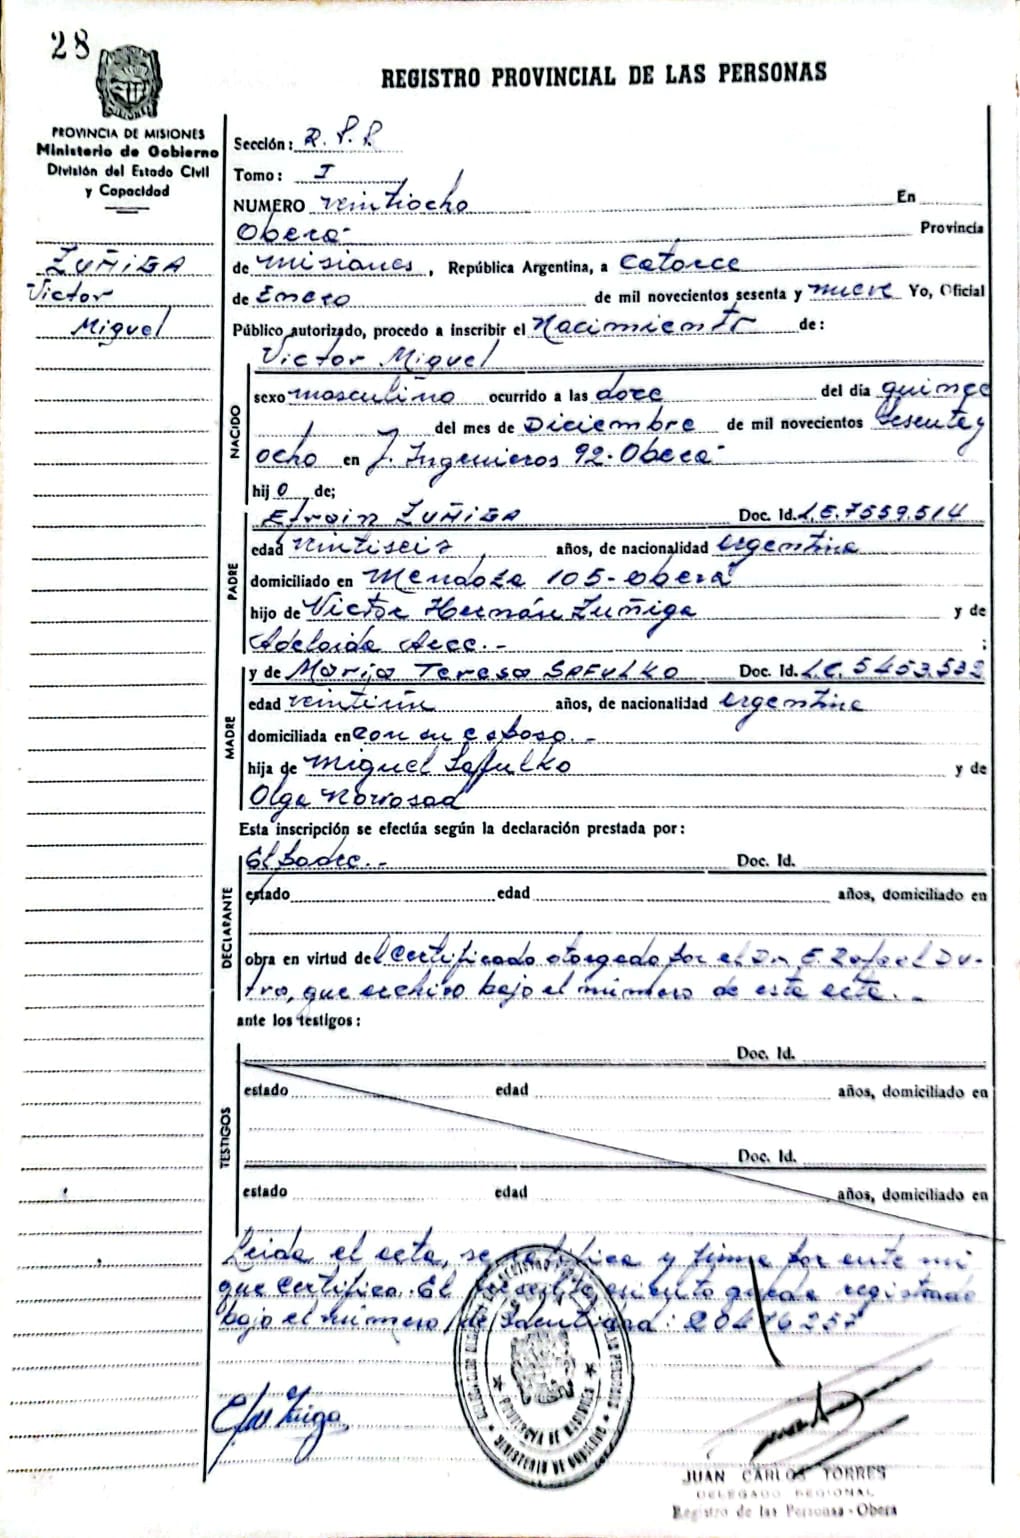 28
REGISTRO PROVINCIAL DE LAS PERSONAS
PROVINCIA DE MISIONES
Ministerio de Gobierno
División del Estado Civil
y Capacidad
ZUÑIGA
Victor
Miguel
Sección: R.P.P.
Tomo: I
NUMERO veintiocho En
Oberá-
Provincia
de misiones, República Argentina, a Catorce
de Enero de mil novecientos sesenta y nueve Yo, Oficial
Público autorizado, procedo a inscribir el Nacimiento de:
Victor Miguel
NACIDO
sexo masculino ocurrido a las doce del día quince
del mes de Diciembre de mil novecientos sesenta y
ocho en J. Ingenieros 92-Oberá-
hijo de;
PADRE
Efrain ZUÑIGA Doc. Id. L.E. 7559.514
edad veintiseis años, de nacionalidad argentina
domiciliado en Mendoza 105-Oberá
hijo de Victor Hernán Zuñiga y de
Adelaida ;
MADRE
y de Maria Teresa SAFULKO Doc. Id. L.C. 5453.532
edad veintiún años, de nacionalidad argentina
domiciliada en con su esposo.-
hija de Miguel Safulko y de
Olga
Esta inscripción se efectúa según la declaración prestada por:
DECLARANTE
El padre.- Doc. Id.
estado edad años, domiciliado en
obra en virtud del certificado otorgado por el Dr. E. Rafael Du-
tra, que archivo bajo el número de este acta.-
ante los testigos:
TESTIGOS
Doc. Id.
estado edad años, domiciliado en
Doc. Id.
estado edad años, domiciliado en
Leida el acta, se ratifica y firma por ante mi
que certifico. El queda registrado
bajo el número de identidad: 20476257
PROVINCIA DE MISIONES
MINISTERIO DE GOBIERNO
JUAN CARLOS TORRES
DELEGADO REGIONAL
Registro de las Personas - Obera